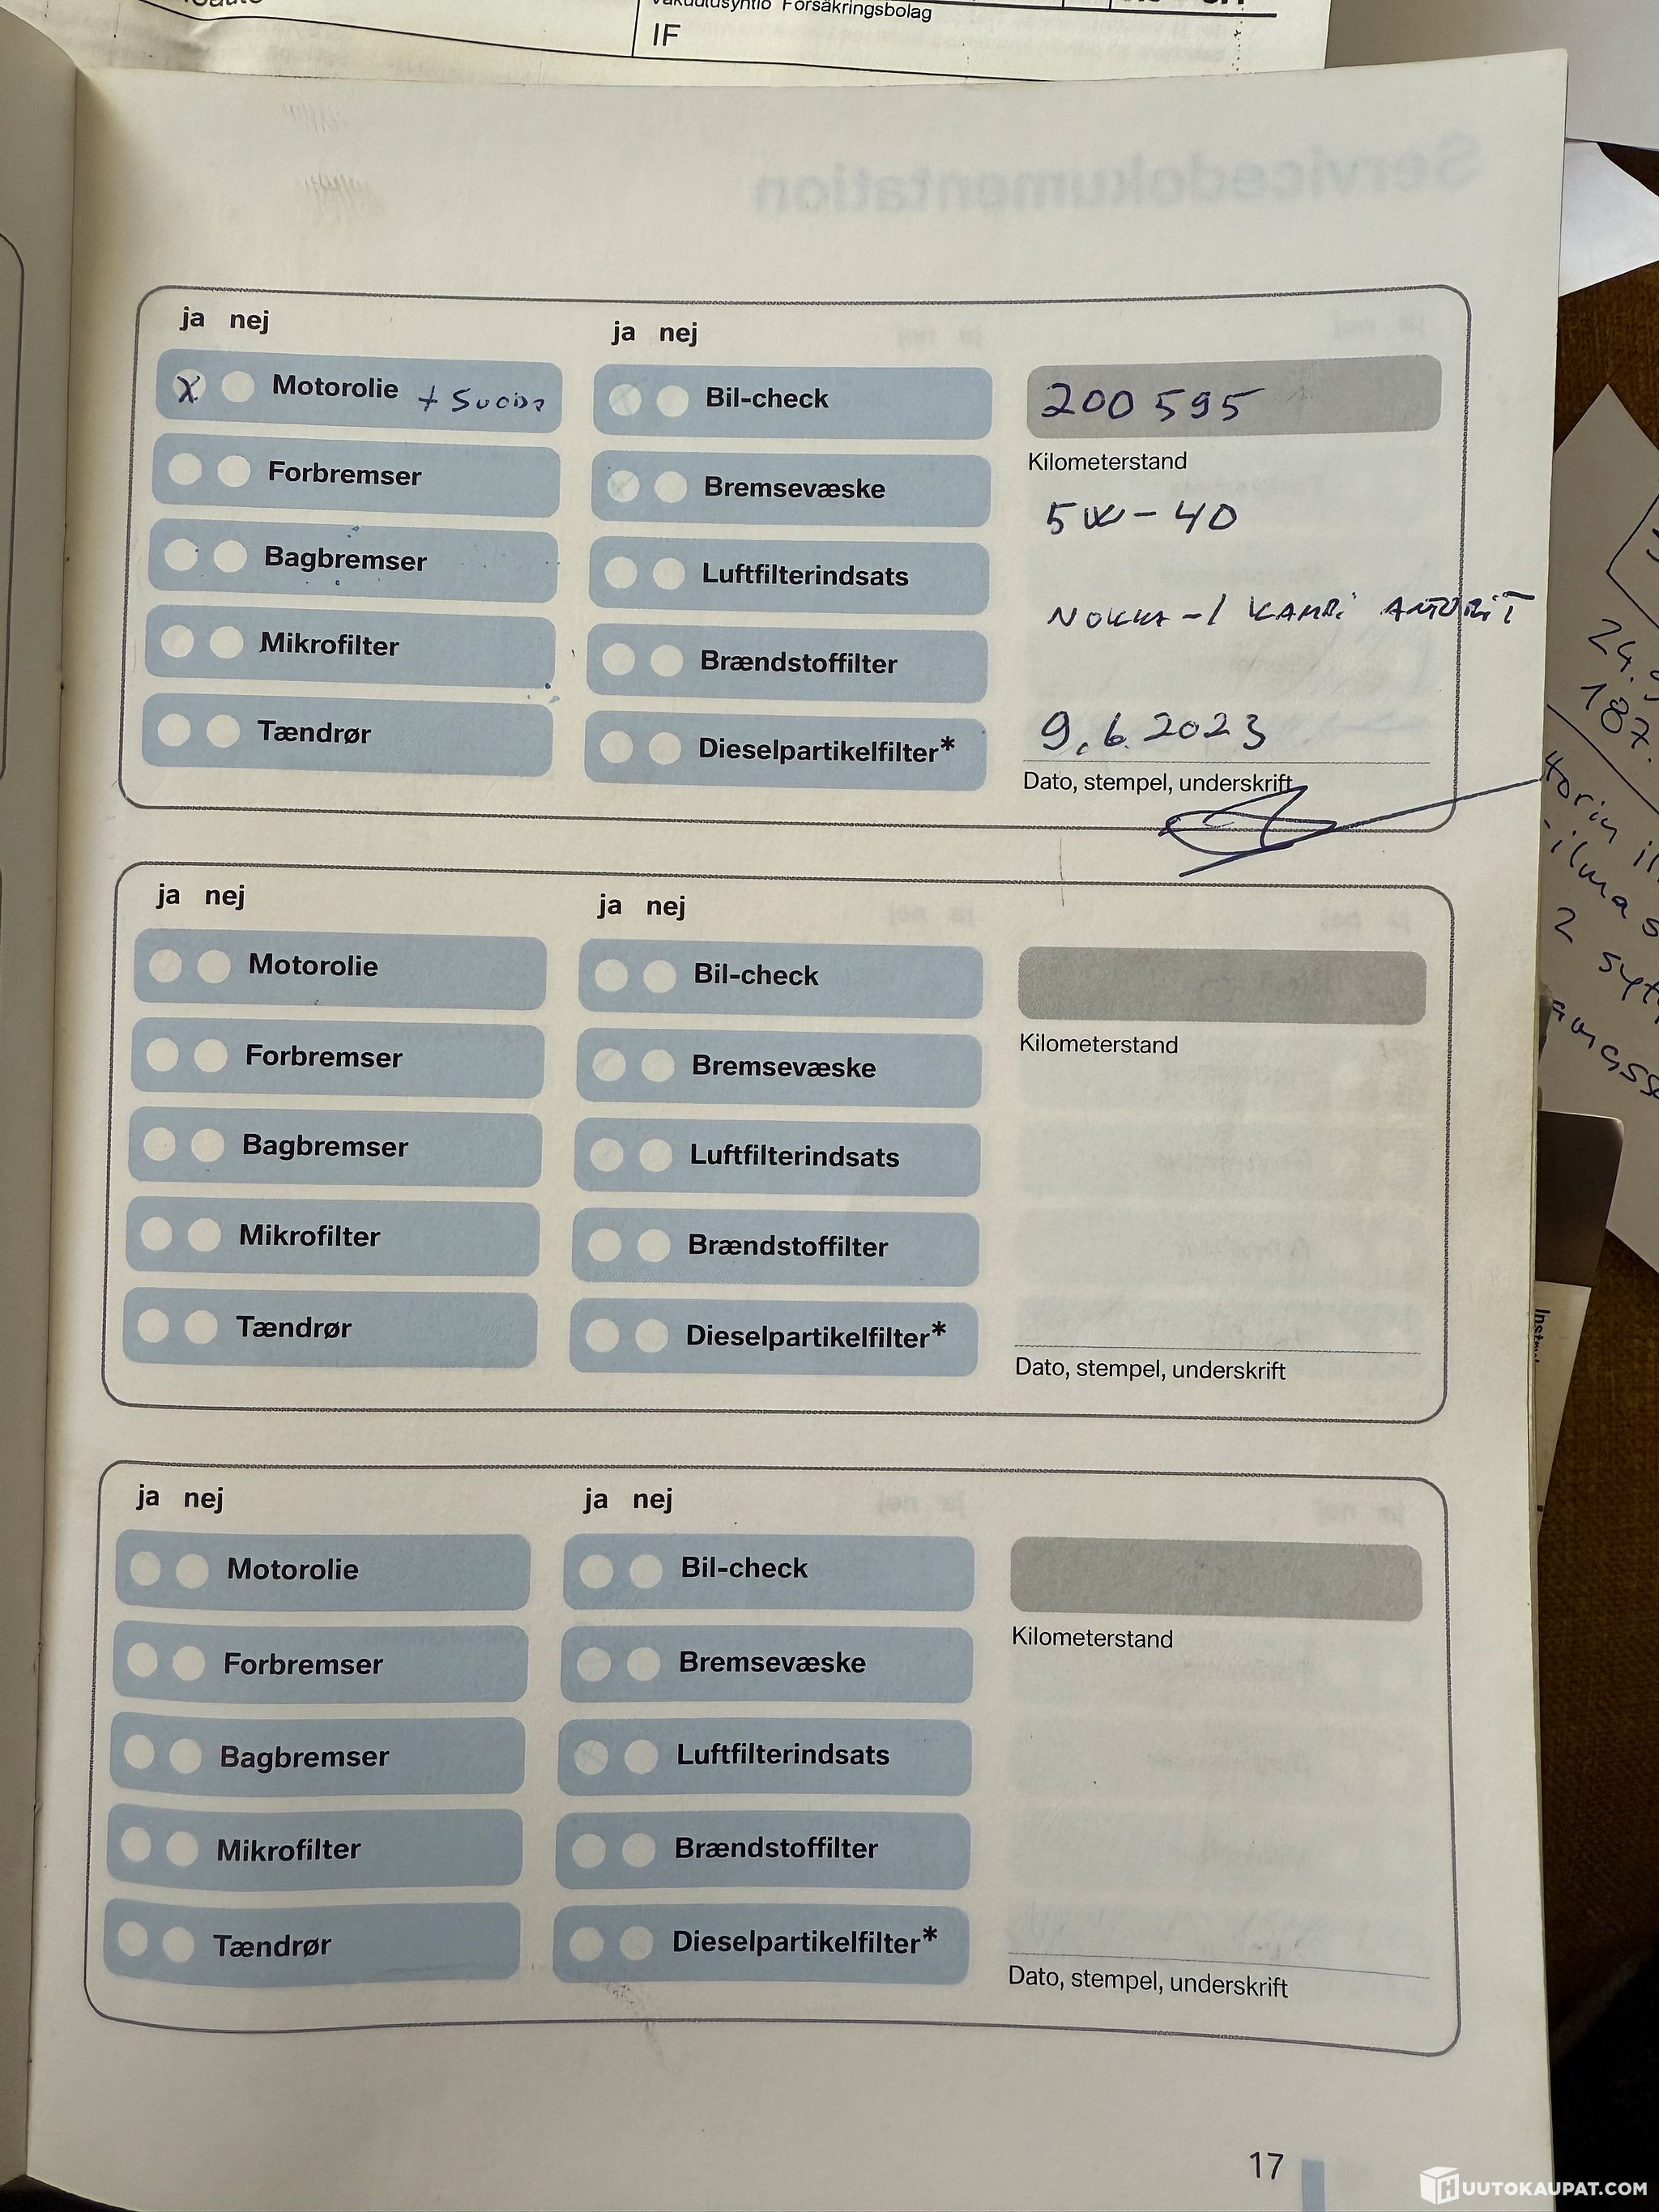 Försäkringsbolag
IF
Servicedokumentation
ja nej
ja nej
X Motorolie + Suoda
Bil-check
200 595
Kilometerstand
Forbremser
Bremsevæske
5W-40
Bagbremser
Luftfilterindsats
NOKKA-/KAMPI ANTURIT
Mikrofilter
Brændstoffilter
Tændrør
Dieselpartikelfilter*
9.6.2023
Dato, stempel, underskrift
ja nej
ja nej
Motorolie
Bil-check
Kilometerstand
Forbremser
Bremsevæske
Bagbremser
Luftfilterindsats
Mikrofilter
Brændstoffilter
Tændrør
Dieselpartikelfilter*
Dato, stempel, underskrift
ja nej
ja nej
Motorolie
Bil-check
Kilometerstand
Forbremser
Bremsevæske
Bagbremser
Luftfilterindsats
Mikrofilter
Brændstoffilter
Tændrør
Dieselpartikelfilter*
Dato, stempel, underskrift
17
24.
187.
2
HUUTOKAUPAT.COM